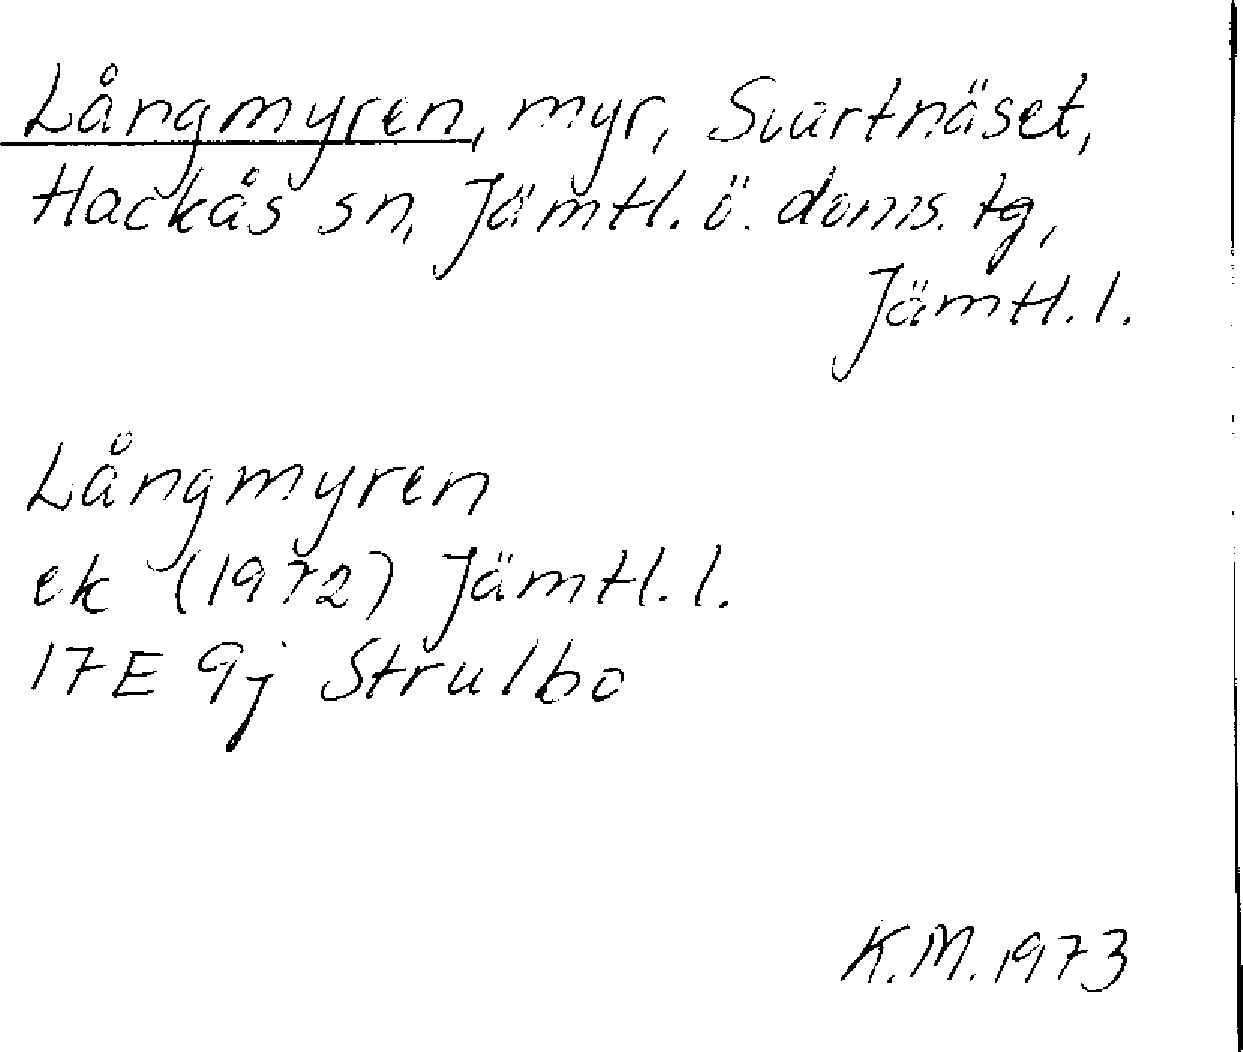 Långmyren, myr, Svartnäset,
Hackås sn, Jämtl. ö. doms. tg,
Jämtl. l.
Långmyren
ek (1972) Jämtl. l.
17E 9j Strulbo
K.M. 1973